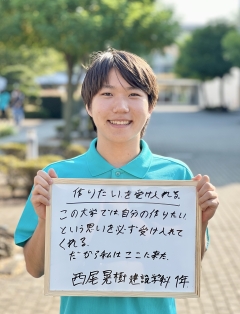 作りたいを受け入れる。
この大学では自分の作りたい
という思いを必ず受け入れて
くれる。
だから私はここに来た。
西尾晃樹 建設学科 1年